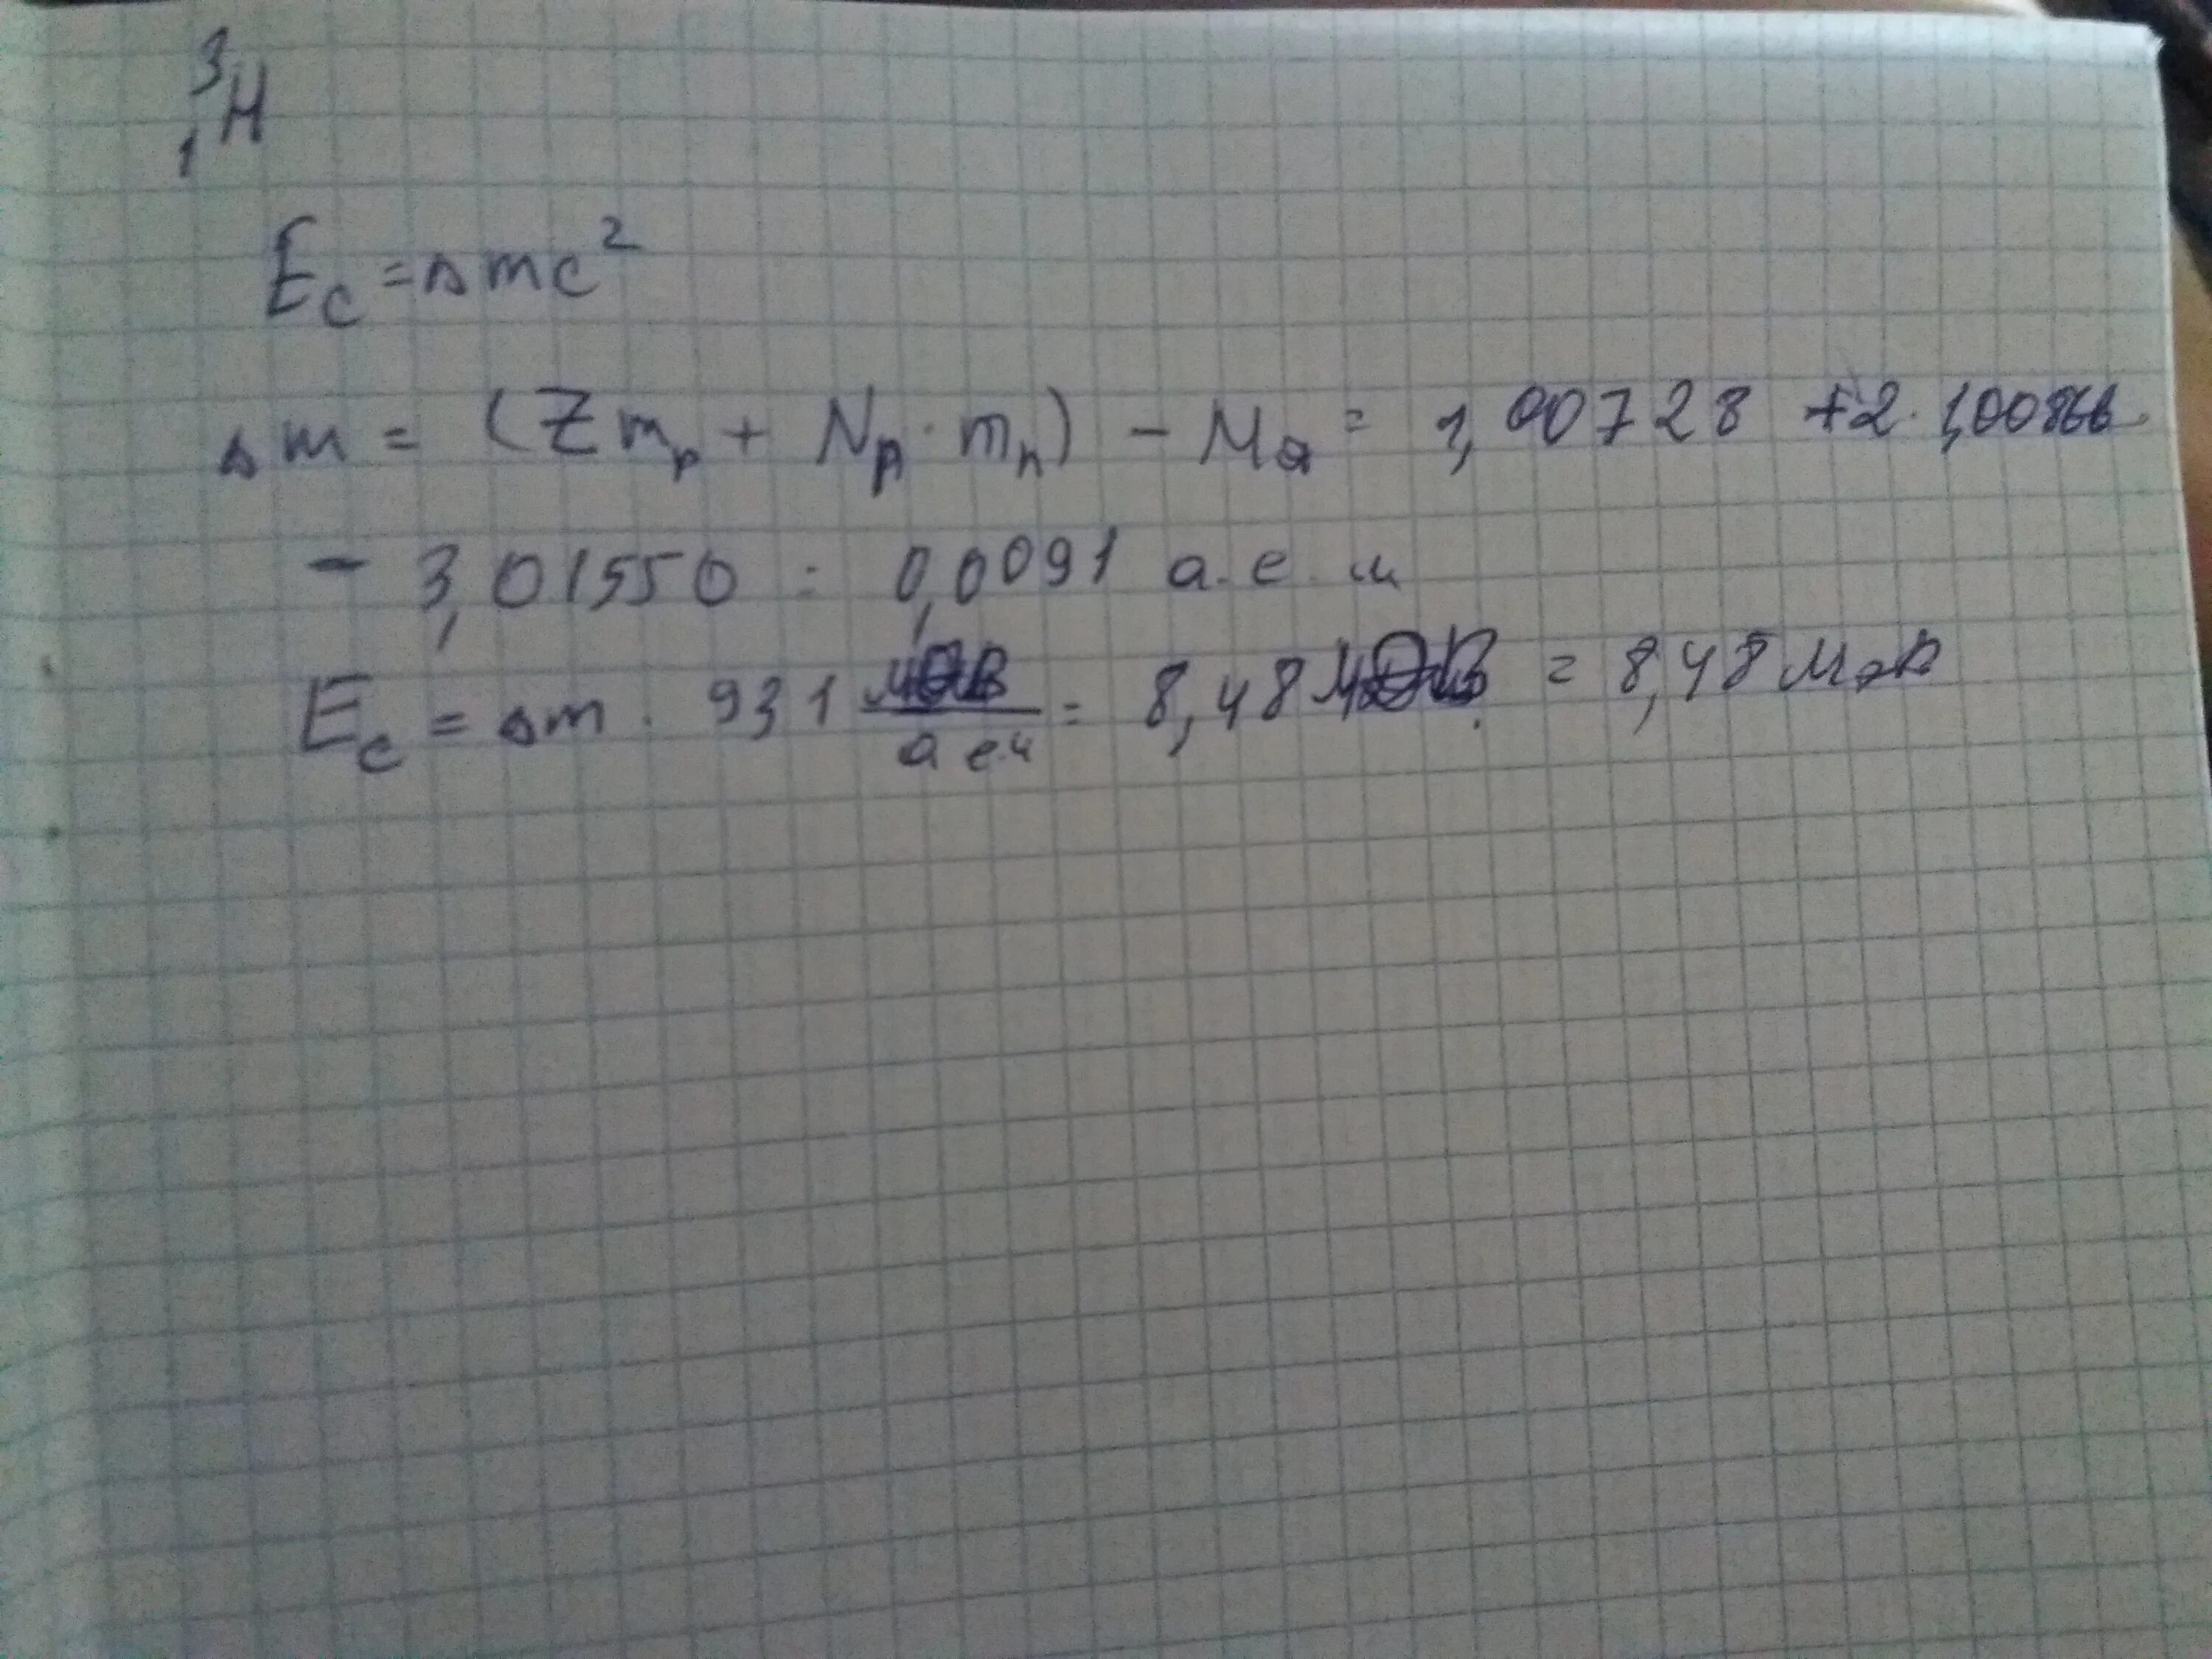 ³₁H
E_c = Δmc²
Δm = (Zm_p + N_p · m_n) - M_я = 1,00728 + 2 · 1,00866
- 3,01550 = 0,0091 а.е.м
E_c = Δm · 931 МэВ/а е.м = 8,48 МэВ = 8,48 МэВ